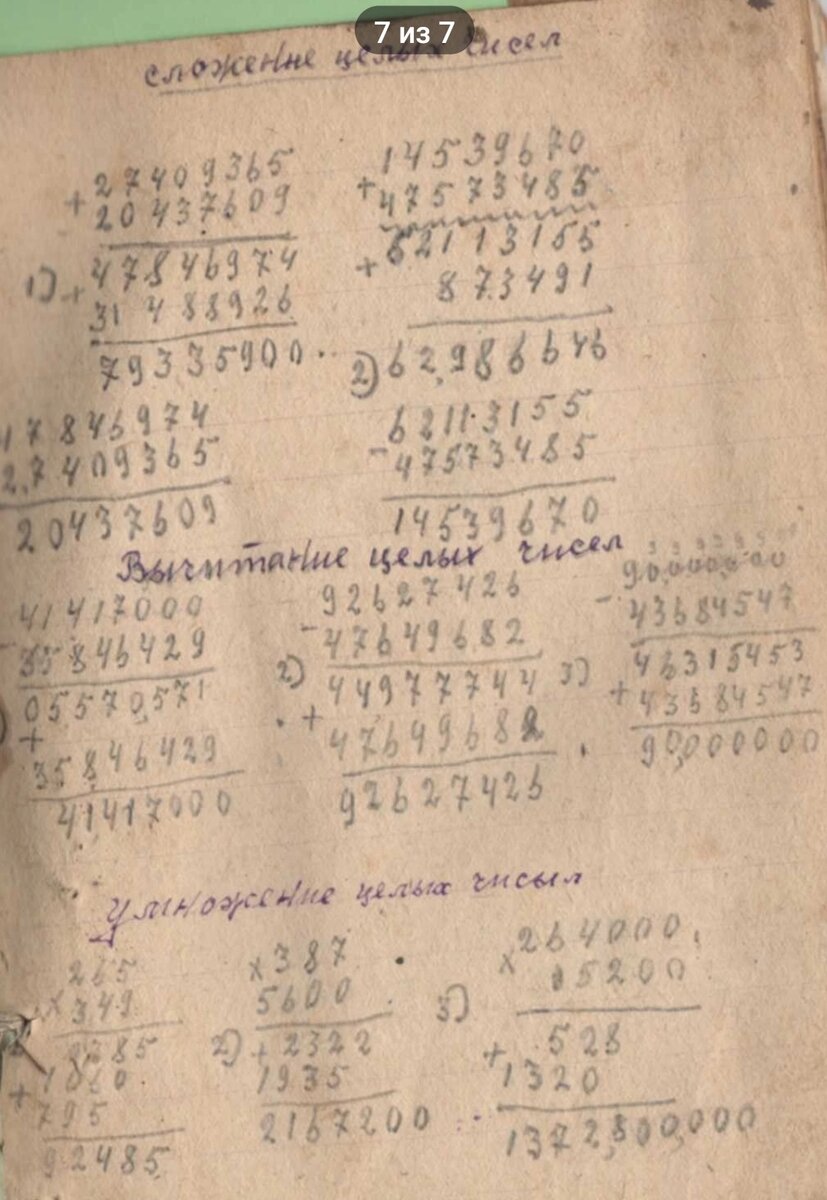 7 из 7
сложение целых чисел
27409365
+ 20437609
47846974
1) + 31488926
79335900.
14539670
+ 47573485
62113155
+ 873491
2) 62986646
47846974
27409365
20437609
62113155
- 47573485
14539670
Вычитание целых чисел
41417000
- 35846429
05570571
+
35846429
41417000
92627426
- 47649682
2) 44977744
+ 47649682
92627426
90000000
- 43684547
3) 46315453
+ 43684547
90,000000
Умножение целых чисыл
265
× 349
2385
+ 1060
795
92485
× 387
5600
2) + 2322
1935
2167200
264000
× 5200
3)
+ 528
1320
1372,800,000